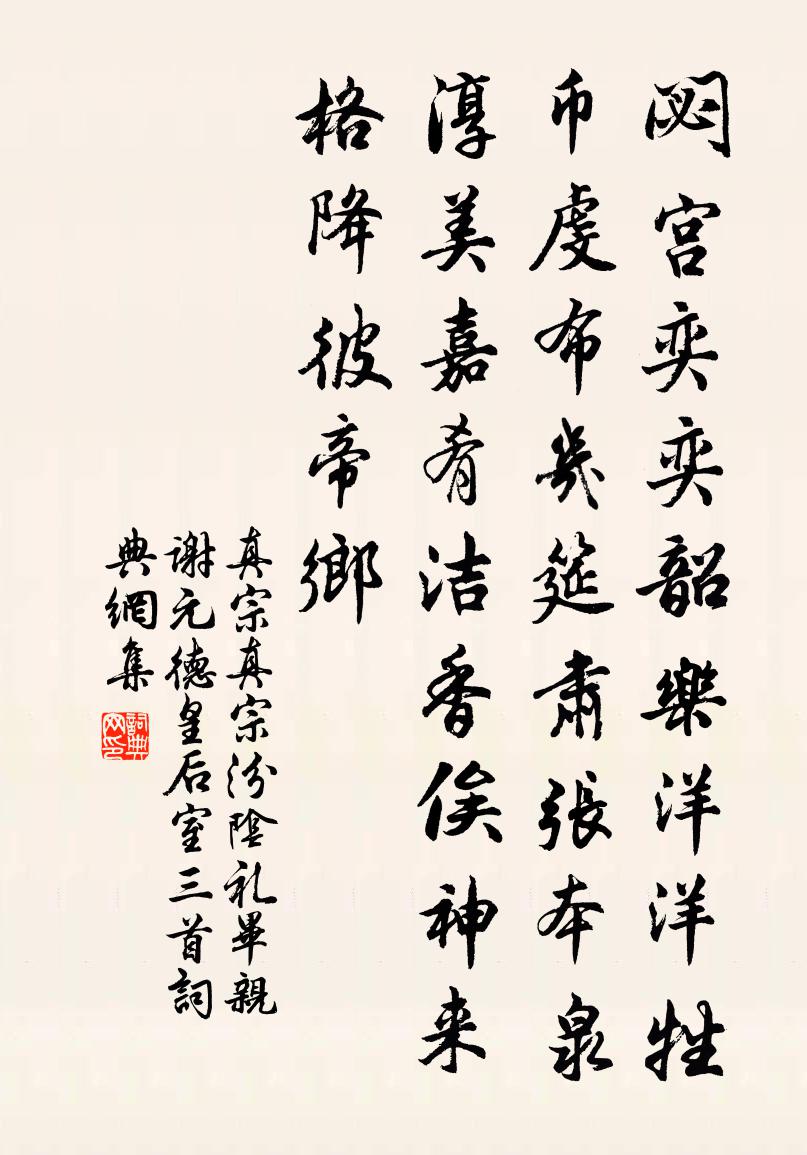 閟宫奕奕韶樂洋洋牲
币虔布几筵肅張本泉
淳美嘉肴洁香俟神来
格降彼帝鄉
真宗真宗汾陰礼畢親
谢元德皇后室三首詞
典網集
詞典网印